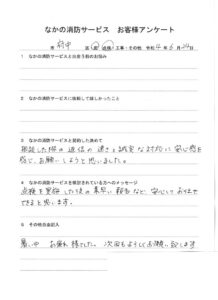 なかの消防サービス　お客様アンケート
市 府中 区 (設)(点検) 工事・その他 令和 4 年 6 月
1 なかの消防サービスと出会う前のお悩み
2 なかの消防サービスに依頼して良しかったこと
3 なかの消防サービスと契約した決めて
相談した際の返信の速さと誠実な対応に安心感を
感じ、お願いしようと思いました。
4 なかの消防サービスを検討されている方へのメッセージ
点検を実施した後の素早い報告など、安心してお任せ
できると思います。
5 その他自由記入
暑い中 お疲れ様でした。次回もよろしくお願い致します